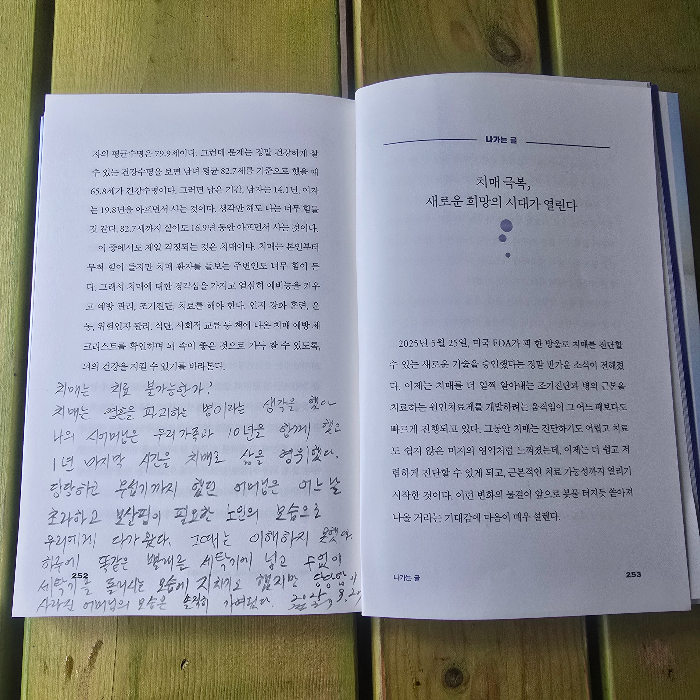 자의 평균수명은 79.9세이다. 그런데 문제는 정말 건강하게 살
수 있는 건강수명을 보면 남녀 평균 82.7세를 기준으로 했을 때
65.8세가 건강수명이다. 그러면 남은 기간, 남자는 14.1년, 여자
는 19.8년을 아프면서 사는 것이다. 생각만 해도 너무 힘들
것 같다. 82.7세까지 살아도 16.9년 동안 아프면서 사는 것이다.
이 중에서도 제일 걱정되는 것은 치매이다. 치매는 본인부터
무척 힘이 들지만 치매 환자를 돌보는 주변인도 너무 힘이 든
다. 그래서 치매에 대한 경각심을 가지고 열심히 예비능을 키우
고 예방 관리, 조기진단, 치료를 해야 한다. 인지 강화 훈련, 운
동, 위험인자 관리, 식단, 사회적 교류 등 책에 나온 치매 예방 체
크리스트를 확인하며 뇌 속이 좋은 것으로 가득 찰 수 있도록,
뇌의 건강을 지킬 수 있기를 바라본다.
치매는 치료 불가능한가!
치매는 영혼을 파괴하는 병이라는 생각을 했다
나의 시어머님은 우리가족과 10년을 함께 했고
1년 마지막 시간을 치매로 삶을 영위했다.
당당하고 무섭기까지 했던 어머님은 어느 날
초라하고 보살핌이 필요한 노인의 모습으로
우리에게 다가왔다. 그때는 이해하지 못했다.
하루에 똑같은 빨래를 세탁기에 넣고 수없이
세탁기를 돌리시는 모습에 지치기도 했지만 당당함이
사라진 어머님의 모습은 솔직히 가여웠다.
252
나가는 글
치매 극복,
새로운 희망의 시대가 열린다
2025년 5월 25일, 미국 FDA가 피 한 방울로 치매를 진단할
수 있는 새로운 기술을 승인했다는 정말 반가운 소식이 전해졌
다. 이제는 치매를 더 일찍 알아내는 조기진단과 병의 근본을
치료하는 원인치료제를 개발하려는 움직임이 그 어느 때보다도
빠르게 진행되고 있다. 그동안 치매는 진단하기도 어렵고 치료
도 쉽지 않은 미지의 영역처럼 느껴졌는데, 이제는 더 쉽고 저
렴하게 진단할 수 있게 되고, 근본적인 치료 가능성까지 열리기
시작한 것이다. 이런 변화의 물결이 앞으로 봇물 터지듯 쏟아져
나올 거라는 기대감에 마음이 매우 설렌다.
나가는 글
253